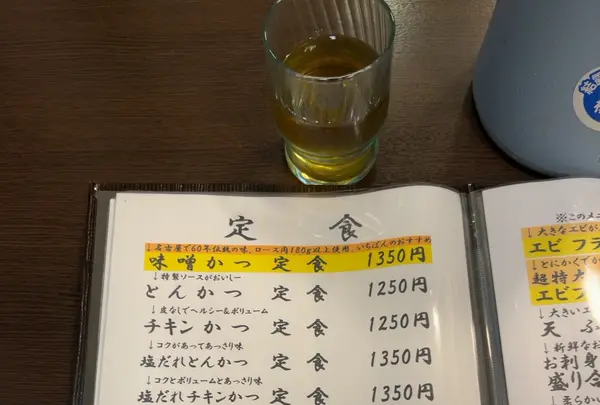 定食
↓名古屋で60年伝統の味、ロース肉180g以上使用、いちばんのおすすめ
味噌かつ定食 1350円
↓特製ソースがおいしー
とんかつ定食 1250円
↓皮なしでヘルシー&ボリューム
チキンかつ定食 1250円
↓コクがあってあっさり味
塩だれとんかつ定食 1350円
↓コクとボリュームとあっさり味
塩だれチキンかつ定食 1350円
※このメニ
↓大きなエビが
エビフラ
↓とにかくでか
超特大
エビフ
↓大きいエ
天ぷ
↓新鮮なお
お刺身
盛り合
↓柔らかい